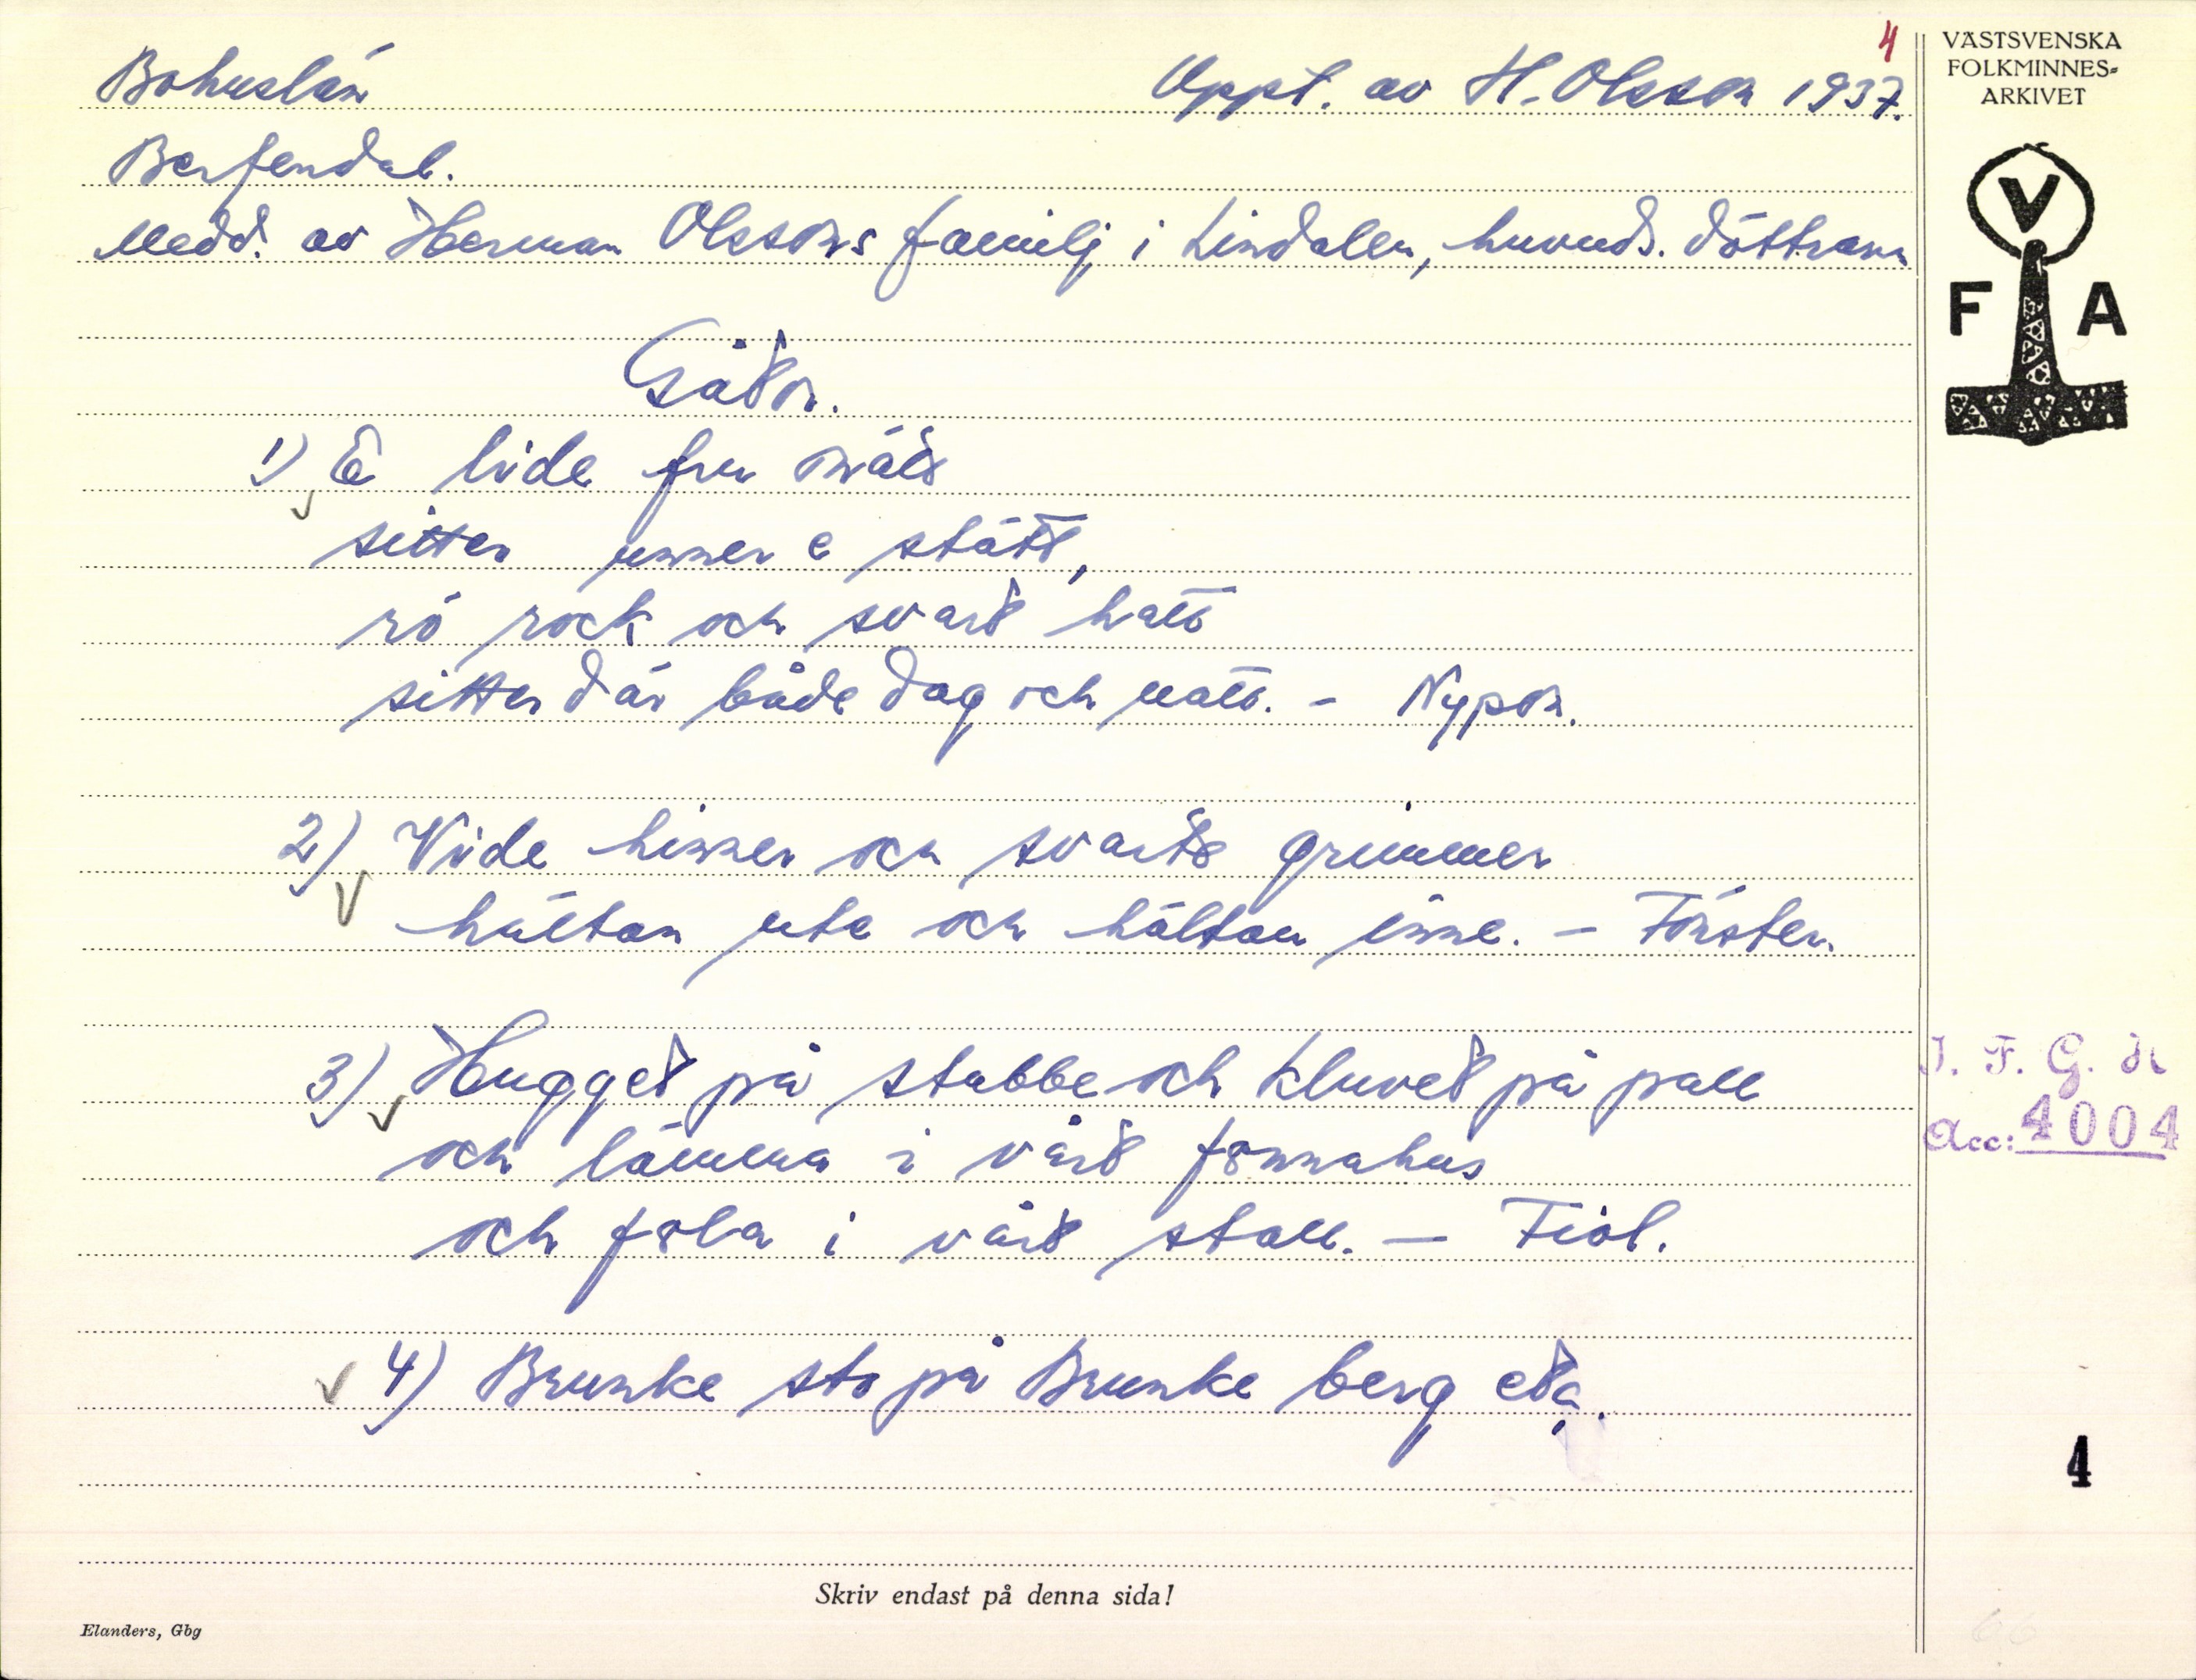 4
VÄSTSVENSKA
FOLKMINNES-
ARKIVET
V
F A
Bohuslän
Uppt. av H. Olsson 1937.
Berfendal.
Medd. av Herman Olssons familj i Lindalen, huvuds. döttrarn
Gåtor.
1) E lide fru
sitter unner e stätt,
rö rock och svart hatt
sitter där både dag och natt. - Nypon.
2) Vide hinner och svarte grimmer
hälten ute och hälten inne. - Fönster.
3) Hugget på stabbe och kluvet på pall
och lämma i vårt fönnahus
och föla i vårt stall. - Fiol.
4) Brunke sto på Brunke berg etc.
I. F. G. H
Acc: 4004
4
Skriv endast på denna sida!
Elanders, Gbg